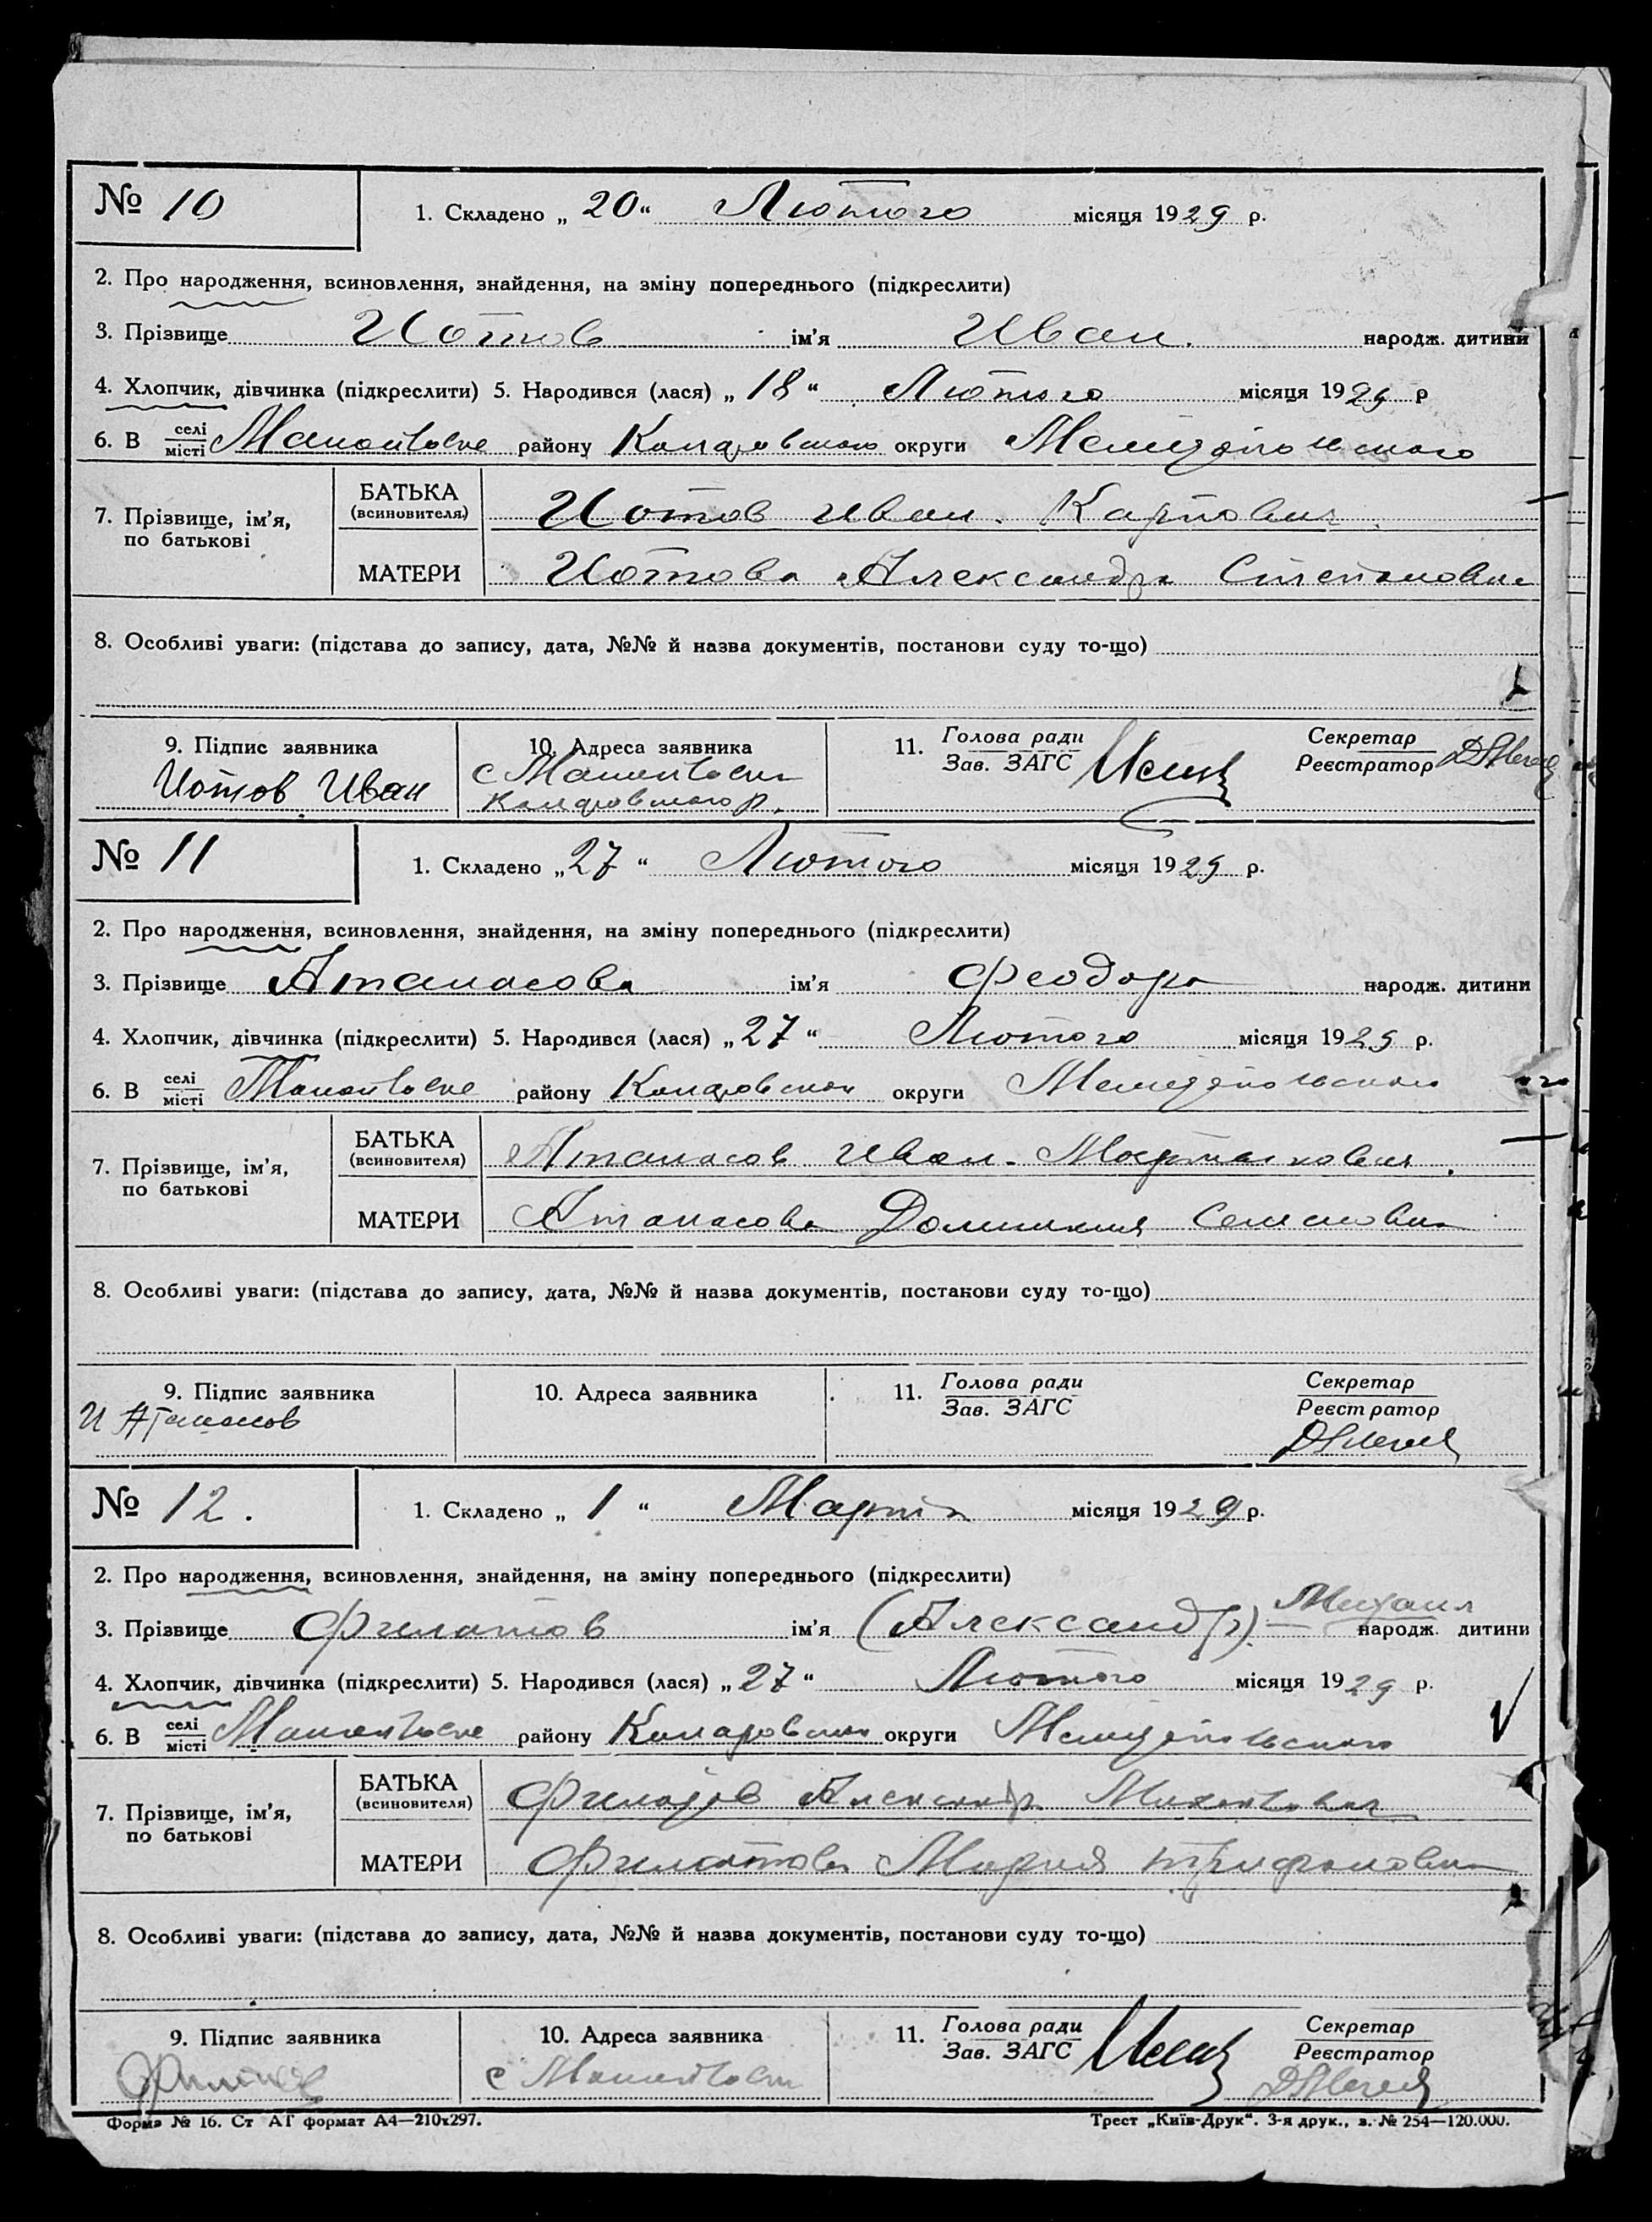 № 10
1. Складено „ 20 “ Лютого місяця 1929 р.
2. Про народження, всиновлення, знайдення, на зміну попереднього (підкреслити)
3. Прізвище Иотов ім'я Иван. народж. дитини
4. Хлопчик, дівчинка (підкреслити) 5. Народився (лася) „ 18 “ Лютого місяця 1929 р
6. В селі місті району округи
7. Прізвище, ім'я, по батькові
БАТЬКА (всиновителя) Иотов Иван. Карпович.
МАТЕРИ Иотова Александра Степановна
8. Особливі уваги: (підстава до запису, дата, №№ й назва документів, постанови суду то-що)
9. Підпис заявника 10. Адреса заявника 11. Голова ради Зав. ЗАГС Секретар Реєстратор
Иотов Иван
№ 11
1. Складено „ 27 “ Лютого місяця 1929 р.
2. Про народження, всиновлення, знайдення, на зміну попереднього (підкреслити)
3. Прізвище Атанасова ім'я Феодора народж. дитини
4. Хлопчик, дівчинка (підкреслити) 5. Народився (лася) „ 27 “ Лютого місяця 1929 р.
6. В селі місті району округи
7. Прізвище, ім'я, по батькові
БАТЬКА (всиновителя) Атанасов Иван.
МАТЕРИ Атанасова Домникия Семеновна
8. Особливі уваги: (підстава до запису, дата, №№ й назва документів, постанови суду то-що)
9. Підпис заявника 10. Адреса заявника 11. Голова ради Зав. ЗАГС Секретар Реєстратор
И Атанасов
№ 12.
1. Складено „ 1 “ Марта місяця 1929 р.
2. Про народження, всиновлення, знайдення, на зміну попереднього (підкреслити)
3. Прізвище Филатов ім'я (Александр) — Михаил народж. дитини
4. Хлопчик, дівчинка (підкреслити) 5. Народився (лася) „ 27 “ Лютого місяця 1929 р.
6. В селі місті району округи
7. Прізвище, ім'я, по батькові
БАТЬКА (всиновителя) Филатов Александр
МАТЕРИ Филатова Мария Трифоновна
8. Особливі уваги: (підстава до запису, дата, №№ й назва документів, постанови суду то-що)
9. Підпис заявника 10. Адреса заявника 11. Голова ради Зав. ЗАГС Секретар Реєстратор
Форма № 16. Ст АГ формат А4—210x297.
Трест „Київ-Друк“. 3-я друк., з. № 254—120.000.